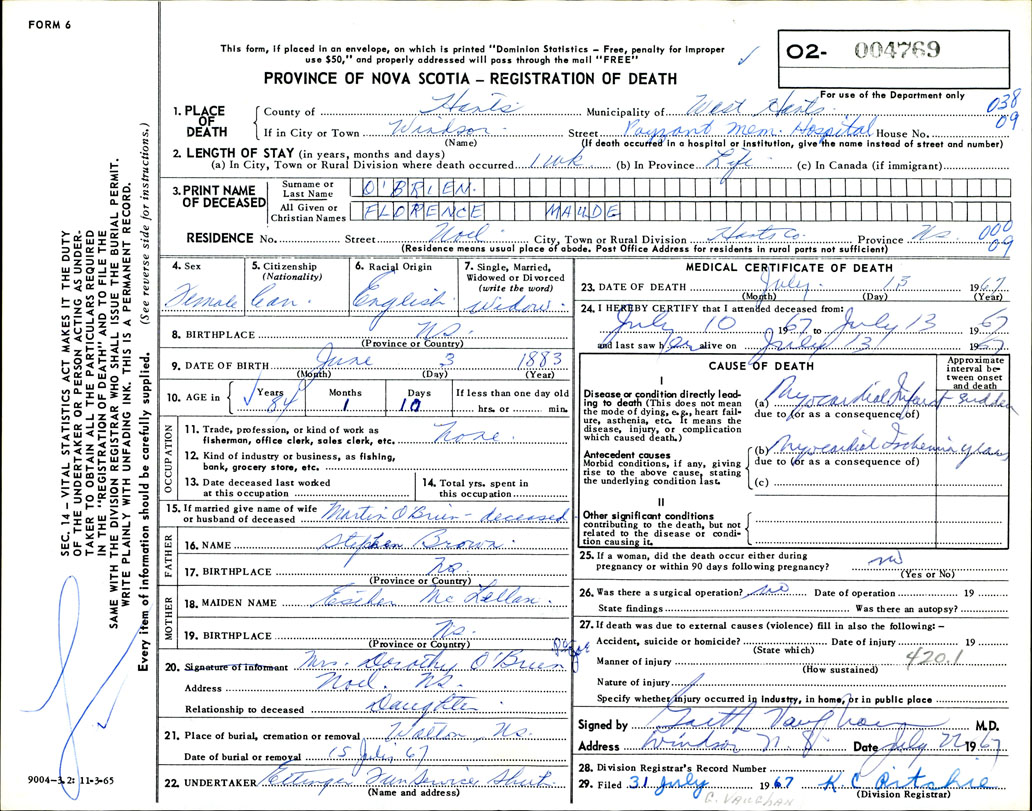 FORM 6
This form, if placed in an envelope, on which is printed "Dominion Statistics – Free, penalty for improper
use $50," and properly addressed will pass through the mail "FREE"
O2- 004769
For use of the Department only
PROVINCE OF NOVA SCOTIA – REGISTRATION OF DEATH
038
09
1. PLACE OF DEATH
County of Hants Municipality of West Hants
If in City or Town Windsor Street Payzant Mem. Hospital House No.
(Name) (If death occurred in a hospital or institution, give the name instead of street and number)
2. LENGTH OF STAY (in years, months and days)
(a) In City, Town or Rural Division where death occurred 1 wk (b) In Province Life (c) In Canada (if immigrant)
3. PRINT NAME OF DECEASED
Surname or Last Name O'BRIEN
All Given or Christian Names FLORENCE MAUDE
RESIDENCE No. Street Noel City, Town or Rural Division Hants Co. Province N.S. 000
09
(Residence means usual place of abode. Post Office Address for residents in rural parts not sufficient)
4. Sex Female
5. Citizenship (Nationality) Can.
6. Racial Origin English
7. Single, Married, Widowed or Divorced (write the word) Widow
8. BIRTHPLACE N.S.
(Province or Country)
9. DATE OF BIRTH June 3 1883
(Month) (Day) (Year)
10. AGE in Years 84 Months 1 Days 10 If less than one day old hrs. or min.
OCCUPATION
11. Trade, profession, or kind of work as fisherman, office clerk, sales clerk, etc. none
12. Kind of industry or business, as fishing, bank, grocery store, etc.
13. Date deceased last worked at this occupation
14. Total yrs. spent in this occupation
15. If married give name of wife or husband of deceased Martin O'Brien - deceased
FATHER
16. NAME Stephen Brown
17. BIRTHPLACE N.S.
(Province or Country)
MOTHER
18. MAIDEN NAME Esther McLellan
19. BIRTHPLACE N.S.
(Province or Country)
20. Signature of informant Mrs. Dorothy O'Brien
Address Noel, N.S.
Relationship to deceased Daughter
21. Place of burial, cremation or removal Walton, N.S.
Date of burial or removal 15 July 67
22. UNDERTAKER Ettinger Fun Service Shub.
(Name and address)
MEDICAL CERTIFICATE OF DEATH
23. DATE OF DEATH July 13 1967
(Month) (Day) (Year)
24. I HEREBY CERTIFY that I attended deceased from:
July 10 1967 to July 13 1967
and last saw her alive on July 13 1967
CAUSE OF DEATH
Approximate interval between onset and death
I
Disease or condition directly leading to death (This does not mean the mode of dying, e.g., heart failure, asthenia, etc. It means the disease, injury, or complication which caused death.)
(a) Myocardial Infarct Sudden
due to (or as a consequence of)
Antecedent causes
Morbid conditions, if any, giving rise to the above cause, stating the underlying condition last.
(b) Myocardial Ischemia years
due to (or as a consequence of)
(c)
II
Other significant conditions
contributing to the death, but not related to the disease or condition causing it.
25. If a woman, did the death occur either during pregnancy or within 90 days following pregnancy? no
(Yes or No)
26. Was there a surgical operation? no Date of operation 19
State findings Was there an autopsy?
27. If death was due to external causes (violence) fill in also the following: –
Accident, suicide or homicide? Date of injury 19
(State which)
Manner of injury 420.1
(How sustained)
Nature of injury
Specify whether injury occurred in industry, in home, or in public place
Signed by Garth Vaughan M.D.
Address Windsor N.S. Date July 22 1967
28. Division Registrar's Record Number
29. Filed 31 July 1967 K C Pitshie
(Division Registrar)
G. VAUGHAN
SEC. 14 – VITAL STATISTICS ACT MAKES IT THE DUTY
OF THE UNDERTAKER OR PERSON ACTING AS UNDERTAKER
TO OBTAIN ALL THE PARTICULARS REQUIRED
IN THE "REGISTRATION OF DEATH" AND TO FILE THE
SAME WITH THE DIVISION REGISTRAR WHO SHALL ISSUE THE BURIAL PERMIT.
WRITE PLAINLY WITH UNFADING INK. THIS IS A PERMANENT RECORD.
Every item of information should be carefully supplied. (See reverse side for instructions.)
9004-3.2: 11-3-65